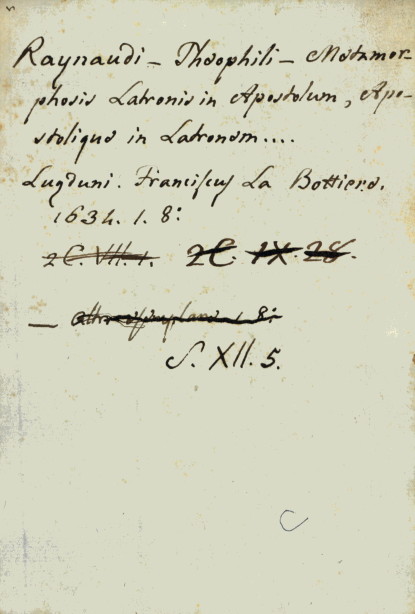 Raynaudi - Theophili - Metamor-
phosis Latronis in Apostolum, Apo-
stolique in Latronem....
Lugduni. Franciscus La Bottiere.
1634. 1. 8:
2C. VII. 1. 2C. IX. 28.
— Altro esemplare 1. 8:
S. XII. 5.
C